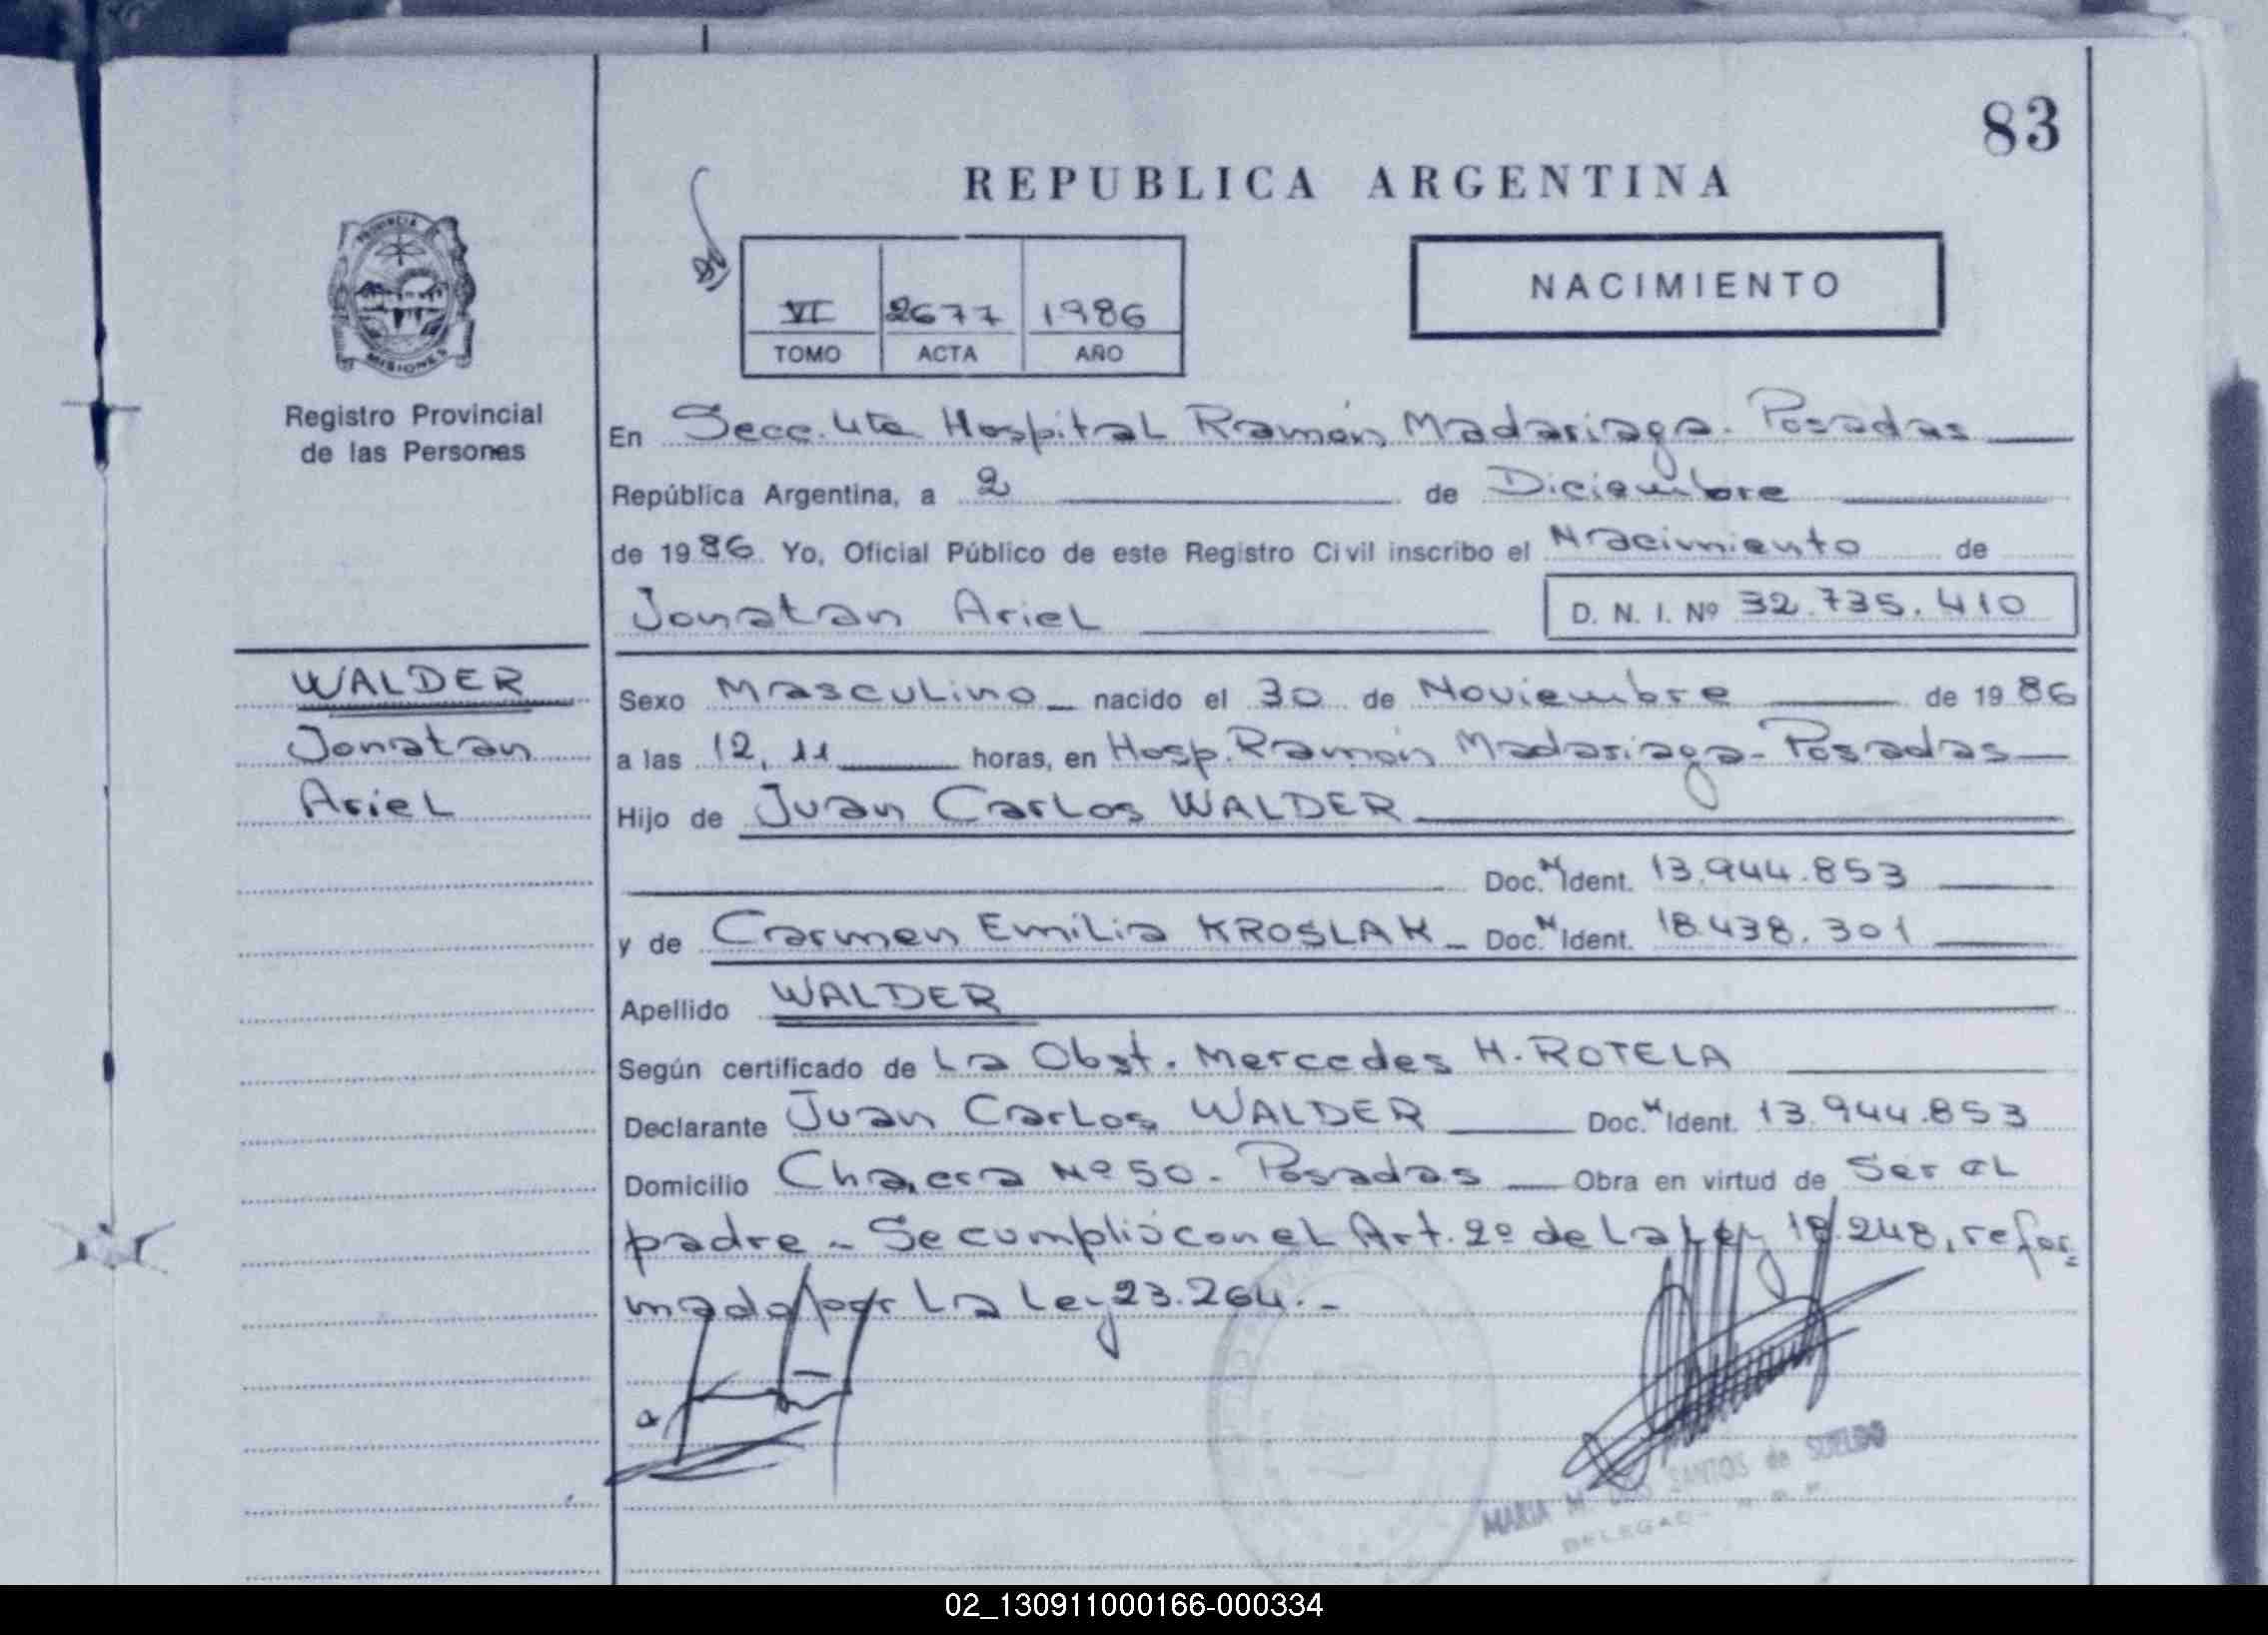 83
REPUBLICA ARGENTINA
PROVINCIA DE
MISIONES
VI 2677 1986
TOMO ACTA AÑO
NACIMIENTO
Registro Provincial
de las Personas
En Secc. 4ta Hospital Ramón Madariaga. Posadas
República Argentina, a 2 de Diciembre
de 1986. Yo, Oficial Público de este Registro Civil inscribo el Nacimiento de
Jonatan Ariel D. N. I. Nº 32.735.410
WALDER
Jonatan
Ariel
Sexo Masculino nacido el 30 de Noviembre de 1986
a las 12,11 horas, en Hosp. Ramón Madariaga - Posadas
Hijo de Juan Carlos WALDER
Doc. N Ident. 13.944.853
y de Carmen Emilia KROSLAK Doc. N Ident. 18.438.301
Apellido WALDER
Según certificado de La Obst. Mercedes H. ROTELA
Declarante Juan Carlos WALDER Doc. N Ident. 13.944.853
Domicilio Chacra Nº 50 - Posadas Obra en virtud de Ser el
padre - Se cumplió con el Art. 2º de la Ley 18.248, refor=
mado por La Ley 23.264.-
MARIA M. SANTOS de SUELDO
02_130911000166-000334